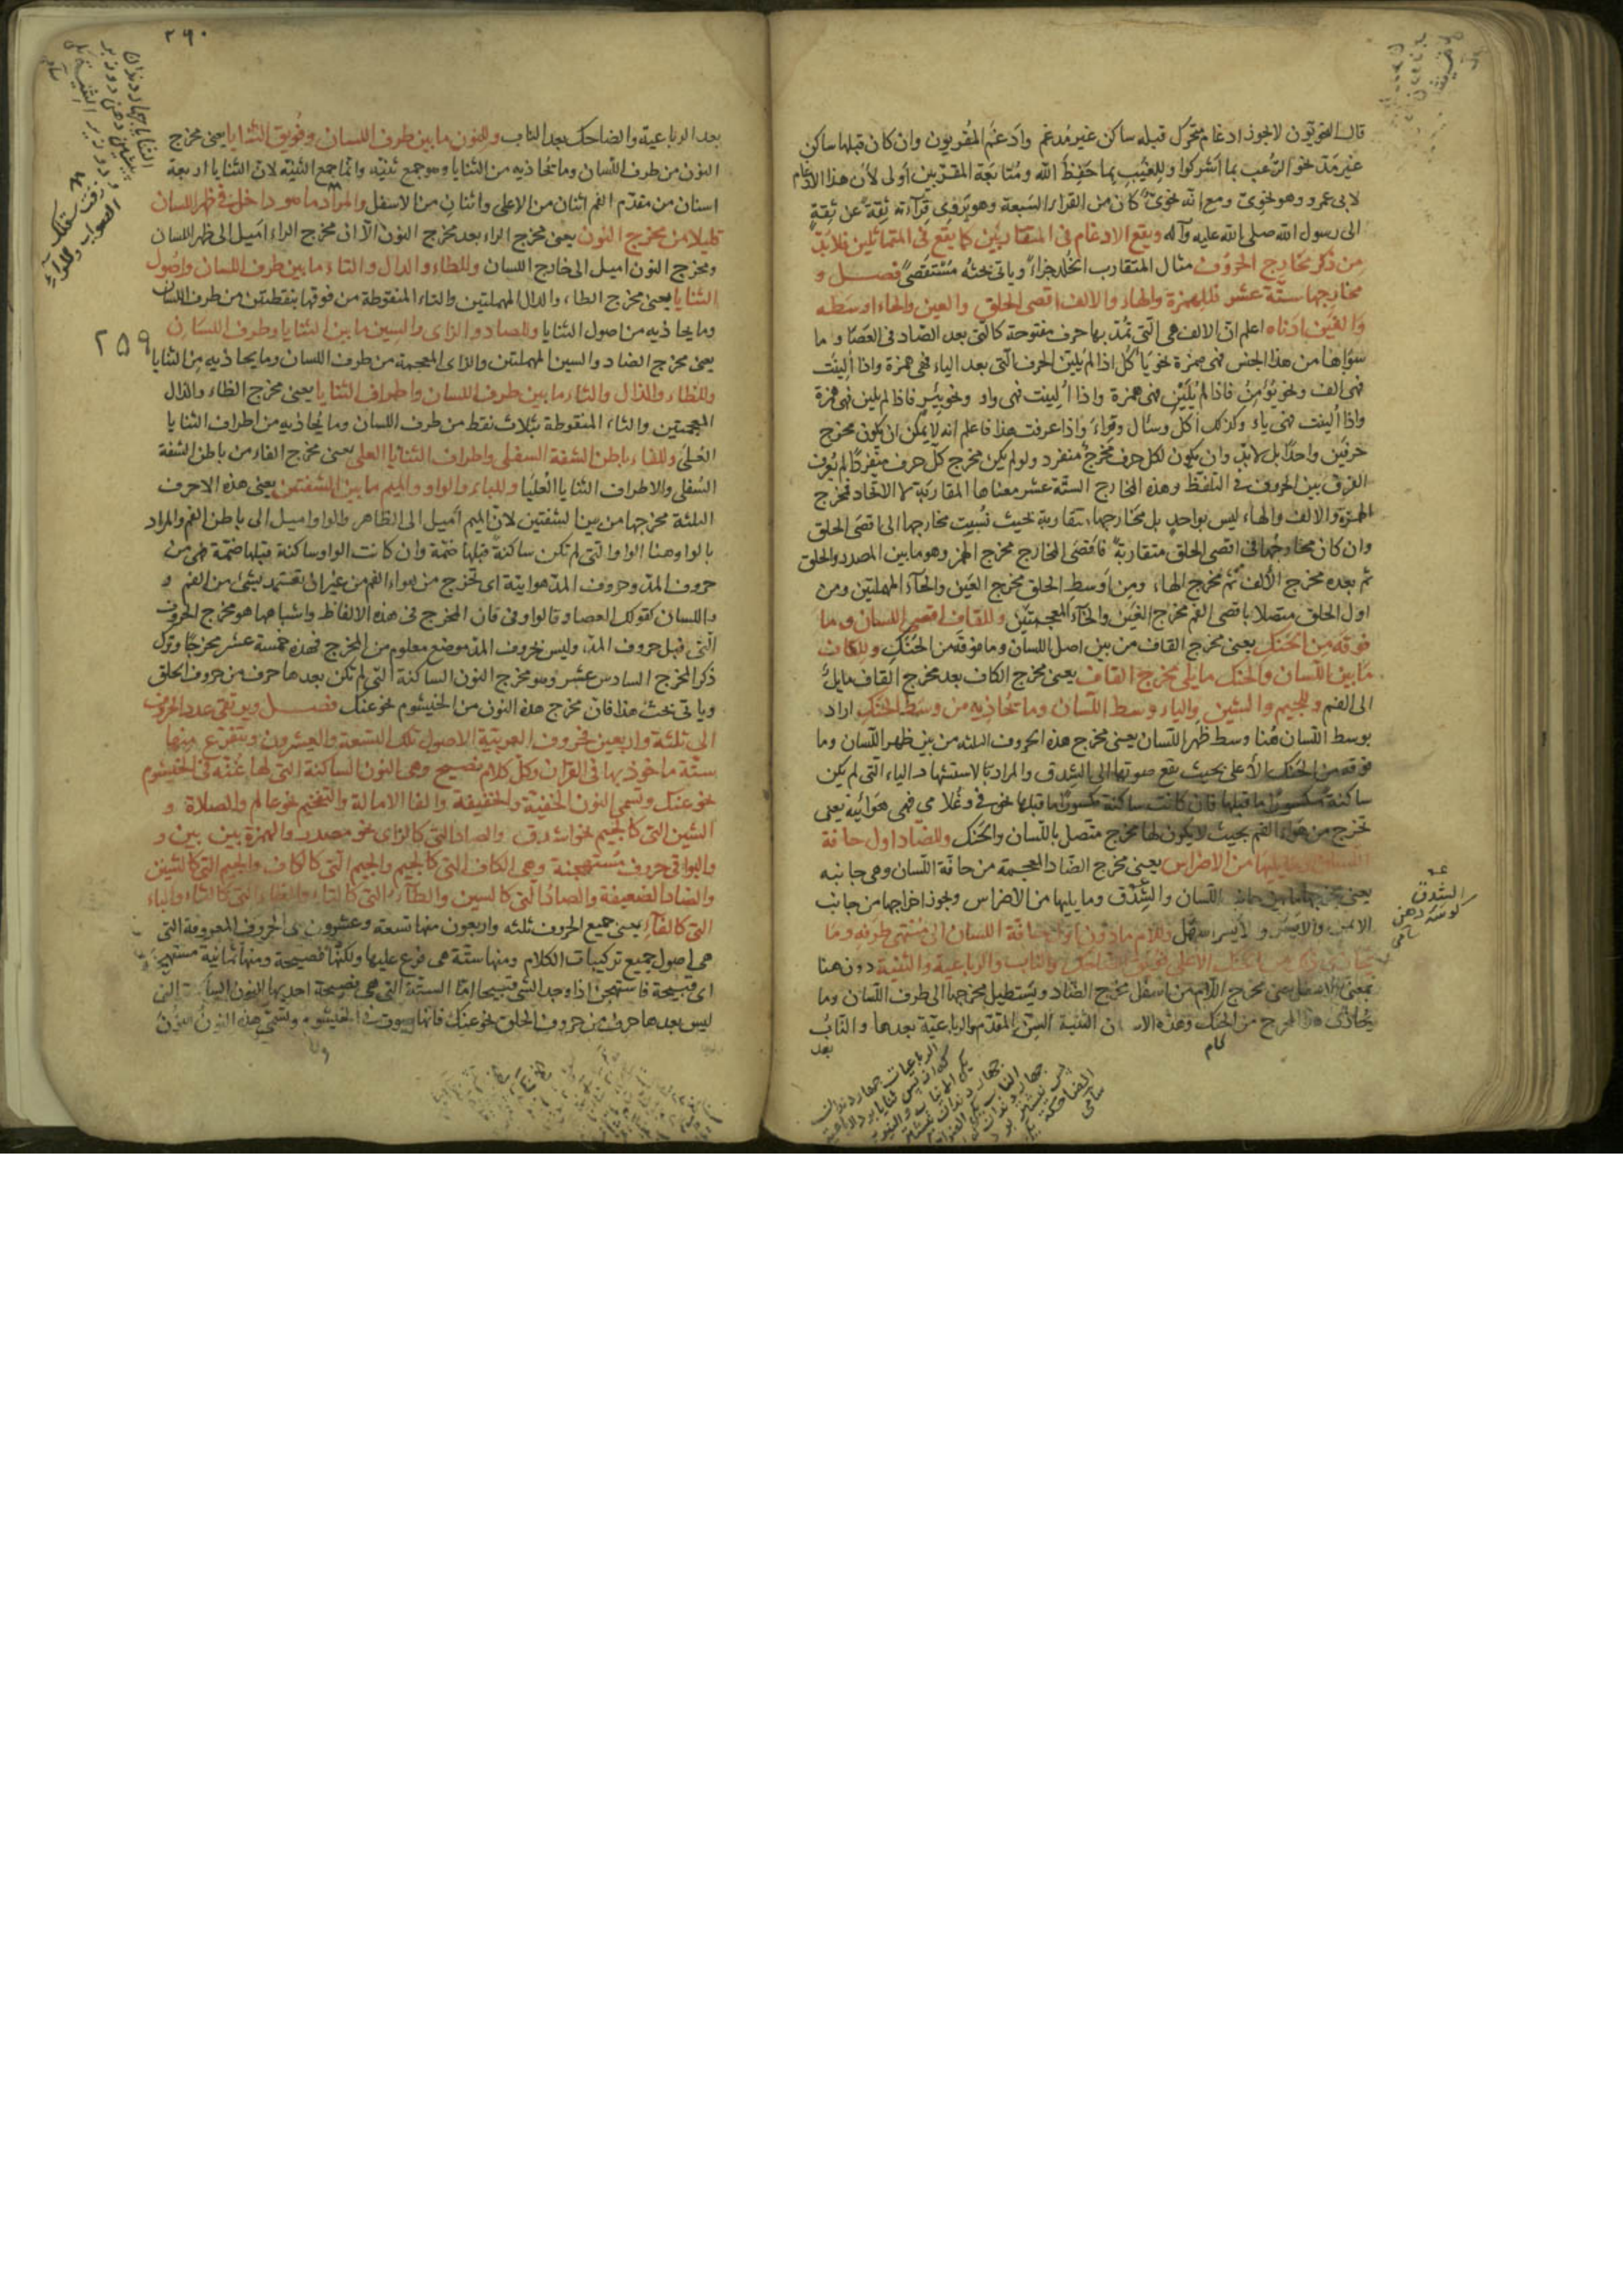 قال النحويون لا يجوز ادغام متحرك قبله ساكن غير مدغم وادغم المقريون وان كان قبلها ساكن
غير مد نحو الرعب بما اشركوا وللغيب بما حفظ الله ومتابعة المقريين أولى لأن هذا الادغام
لابى عمرو وهو نحوى ومع انه نحوى كان من القراء السبعة وهو يروى قرآءته ثقة عن ثقة
الى رسول الله صلى الله عليه وآله ويقع الادغام فى المتقاربين كما يقع فى المتماثلين فلا بد
من ذكر مخارج الحروف مثال المتقارب وياتى بحثه مستقصى فصل و
مخارجها ستة عشر فللهمزة والهاء والالف اقصى الحلق والعين والحاء اوسطه
والغين ادناه اعلم ان الالف هى التى تمد بها حرف مفتوحة كالتى بعد الصاد فى العصا و ما
سواها من هذا الجنس فهى همزة نحو يأكل اذا لم يلين الحرف التى بعد الياء فهى همزة واذا ألينت
فهى الف ونحو يؤمن فاذا لم يلين فهى همزة واذا ألينت فهى واو ونحو بئس فاذا لم يلين فهى همزة
واذا ألينت فهى ياء وكذلك أكل وسئال وقراء واذا عرفت هذا فاعلم انه لا يمكن ان يكون مخرج
حرفين واحدا بل لابد وان يكون لكل حرف مخرج منفرد ولو لم يكن مخرج كل حرف منفردا لم يعرف
الفرق بين الحروف فى التلفظ وهذه المخارج الستة عشر معناها المقاربة لا الاتحاد فمخرج
الهمزة والالف والهاء ليس بواحد بل مخارجها متقاربة بحيث نسبت مخارجها الى اقصى الحلق
وان كان مخارجها فى اقصى الحلق متقاربة فاقصى المخارج مخرج الهمز وهو ما بين الصدر والحلق
ثم بعده مخرج الألف ثم مخرج الهاء ومن اوسط الحلق مخرج العين والحاء المهملتين ومن
اول الحلق متصلا باقصى الفم مخرج الغين والخاء المعجمتين وللقاف اقصى اللسان وما
فوقه من الحنك يعنى مخرج القاف من بين اصل اللسان وما فوقه من الحنك وللكاف
ما بين اللسان والحنك ما يلى مخرج القاف يعنى مخرج الكاف بعد مخرج القاف مايل
الى الفم وللجيم والشين والياء وسط اللسان وما تحاذيه من وسط الحنك اراد
بوسط اللسان هنا وسط ظهر اللسان يعنى مخرج هذه الحروف الثلثه من بين ظهر اللسان وما
فوقه من الحنك الأعلى بحيث يقع صوتها الى الشدق والمراد الياء التى لم يكن
ساكنة مكسورا ما قبلها فان كانت ساكنة مكسورا ما قبلها نحو فى وغلامى فهى هوائية يعنى
تخرج من هواء الفم بحيث لا يكون لها مخرج متصل باللسان والحنك وللضاد اول حافة
اللسان وما يليها من الاضراس يعنى مخرج الضاد المعجمة من حافة اللسان وهى جانبه
يعنى اللسان والشدق وما يليها من الاضراس ويجوز اخراجها من جانب
الايمن والايسر والأيسر اسهل وللام مادون اول حافة اللسان الى منتهى طرفه وما
الحنك الأعلى فويق الضاحك والناب والرباعية والثنية دون هنا
بمعنى الاسفل يعنى مخرج اللام من اسفل مخرج الضاد ويستطيل مخرجها الى طرف اللسان وما
يحاذى المخرج من الحنك الثنية السن المقدم والرباعية بعدها والناب
بعد
الشدق
كوشه دهن
سامى
٢٦٠
بعد الرباعية والضاحك بعد الناب وللنون ما بين طرف اللسان وفويق الثنايا يعنى مخرج
النون من طرف اللسان وما تحاذيه من الثنايا وهو جمع ثنيه وانما جمع الثنية لان الثنايا اربعة
اسنان من مقدم الفم اثنان من الاعلى واثنان من الاسفل وللراء ما هو داخل فى ظهر اللسان
قليلا من مخرج النون يعنى مخرج الراء بعد مخرج النون الا ان مخرج الراء اميل الى ظهر اللسان
ومخرج النون اميل الى خارج اللسان وللطاء والدال والتاء ما بين طرف اللسان واصول
الثنايا يعنى مخرج الطاء والدال المهملتين والتاء المنقوطة من فوقها بنقطتين من طرف اللسان
وما يحاذيه من اصول الثنايا وللصاد والزاى والسين ما بين الثنايا وطرف اللسان
٢٥٩
يعنى مخرج الصاد والسين المهملتين والزاى المعجمة من طرف اللسان وما يحاذيه من الثنايا
وللظاء والذال والثاء ما بين طرف اللسان واطراف الثنايا يعنى مخرج الظاء والذال
المعجمتين والثاء المنقوطة بثلاث نقط من طرف اللسان وما يحاذيه من اطراف الثنايا
العلى وللفاء باطن الشفة السفلى واطراف الثنايا العلى يعنى مخرج الفاء من باطن الشفة
السفلى والاطراف الثنايا العليا وللباء والواو والميم ما بين الشفتين يعنى هذه الاحرف
الثلثة مخرجها من بين الشفتين لان الميم اميل الى الظاهر والواو اميل الى باطن الفم والمراد
بالواو هنا الواو التى لم تكن ساكنة قبلها ضمة وان كانت الواو ساكنة قبلها ضمة فهى من
حروف المد وحروف المد هوايية اى تخرج من هواء الفم من غير ان تعتمد بشئ من الفم و
واللسان كقولك العصا و قالوا وفى فان المخرج فى هذه الالفاظ واشباهها هو مخرج الحروف
التى قبل حروف المد وليس لحروف المد موضع معلوم من المخرج فهذه خمسة عشر مخرجا وترك
ذكر المخرج السادس عشر وهو مخرج النون الساكنة التى لم تكن بعدها حرف من حروف الحلق
وياتى بحث هذا فان مخرج هذه النون من الخيشوم نحو عنك فصل ويرتقى عدد الحروف
الى ثلثة واربعين فحروف العربية الاصول تلك التسعة والعشرون ويتفرع منها
ستة ماخوذ بها فى القرآن وكل كلام فصيح وهى النون الساكنة التى لها غنة فى الخيشوم
نحو عنك وتسمى النون الخفية والخفيفة والفا الامالة والتفخيم نحو عالم والصلاة و
الشين التى كالجيم نحو اشدق والصاد التى كالزاى نحو مصدر والهمزة بين بين و
والبواقى حروف مستهجنة وهى الكاف التى كالجيم والجيم التى كالكاف والجيم التى كالشين
والضاد الضعيفة والصاد التى كالسين والطاء التى كالتاء والظاء التى كالثاء والباء
التى كالفاء يعنى جميع الحروف ثلثه واربعون منها تسعة وعشرون هى الحروف المعروفة التى
هى اصول جميع تركيبات الكلام ومنها ستة هى فرع عليها ولكنها فصيحة ومنها ثمانية مستهجنة
اى قبيحة فاستهجن اذا وجد الشى قبيحا اما الستة التى هى فصيحة احديها النون الساكنة التى
ليس بعدها حرف من حروف الحلق نحو عنك فانها صوت فى الخيشوم وتسمى هذه النون النون